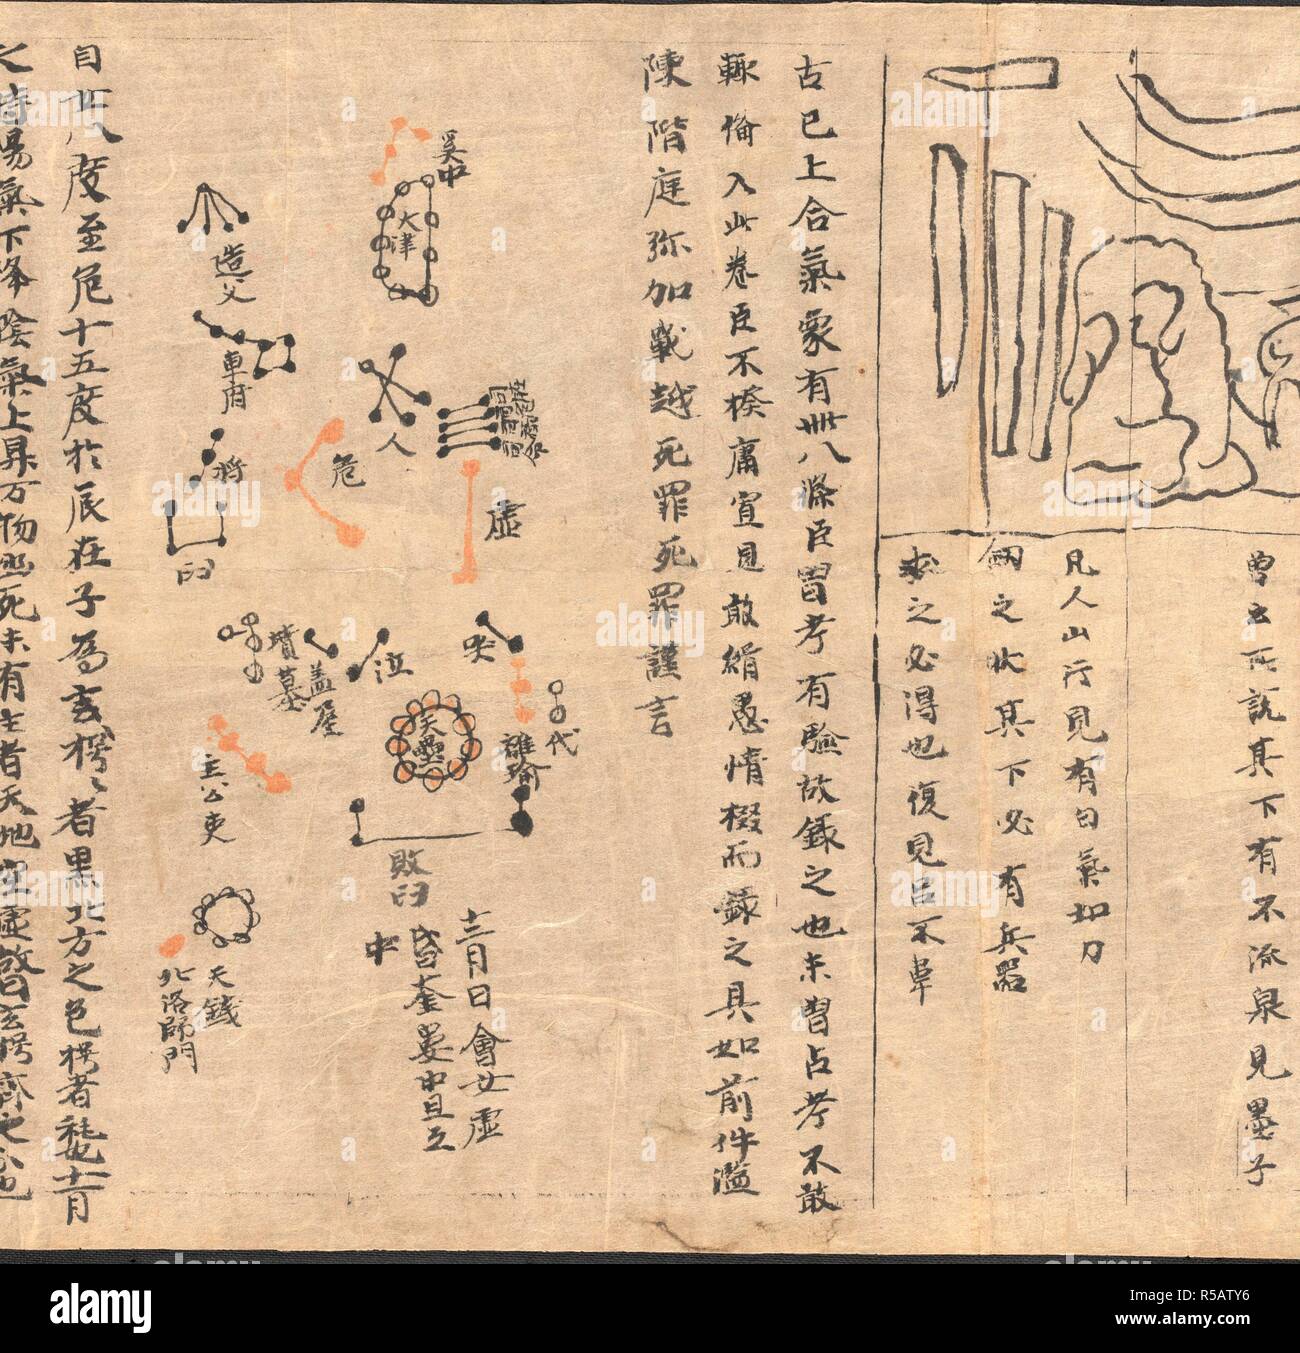 曾云所説其下有不流泉見墨子
凡人山行見有白氣如刀
劒之狀其下必有兵器
求之必得也復見吕不韋
古已上合氣象有卌八條臣曽考有驗故録之也未曽占考不敢
輙備入此卷臣不揆庸冝見敢緝愚情掇而録之具如前件濫
陳階庭弥加戰越死罪死罪謹言
奚中
天津
造父
車府
人
司命
虚
危
將
臼
哭
泣
盖屋
墳墓
代
離瑜
天壘
主公吏
敗臼
十二月日會女虚
昏奎婁中旦互
中
天錢
北洛師門
自廿八度至危十五度於辰在子為玄枵ミ者黒北方之色枵者秏也十一月
之時陽氣下降隂氣上昇万物幽死未有生者天地空虚故曰玄枵齊之分也
alamy
Image ID: R5ATY6
www.alamy.com